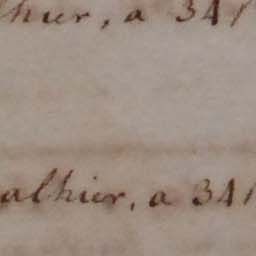 hier, a 341
alhier, a 341